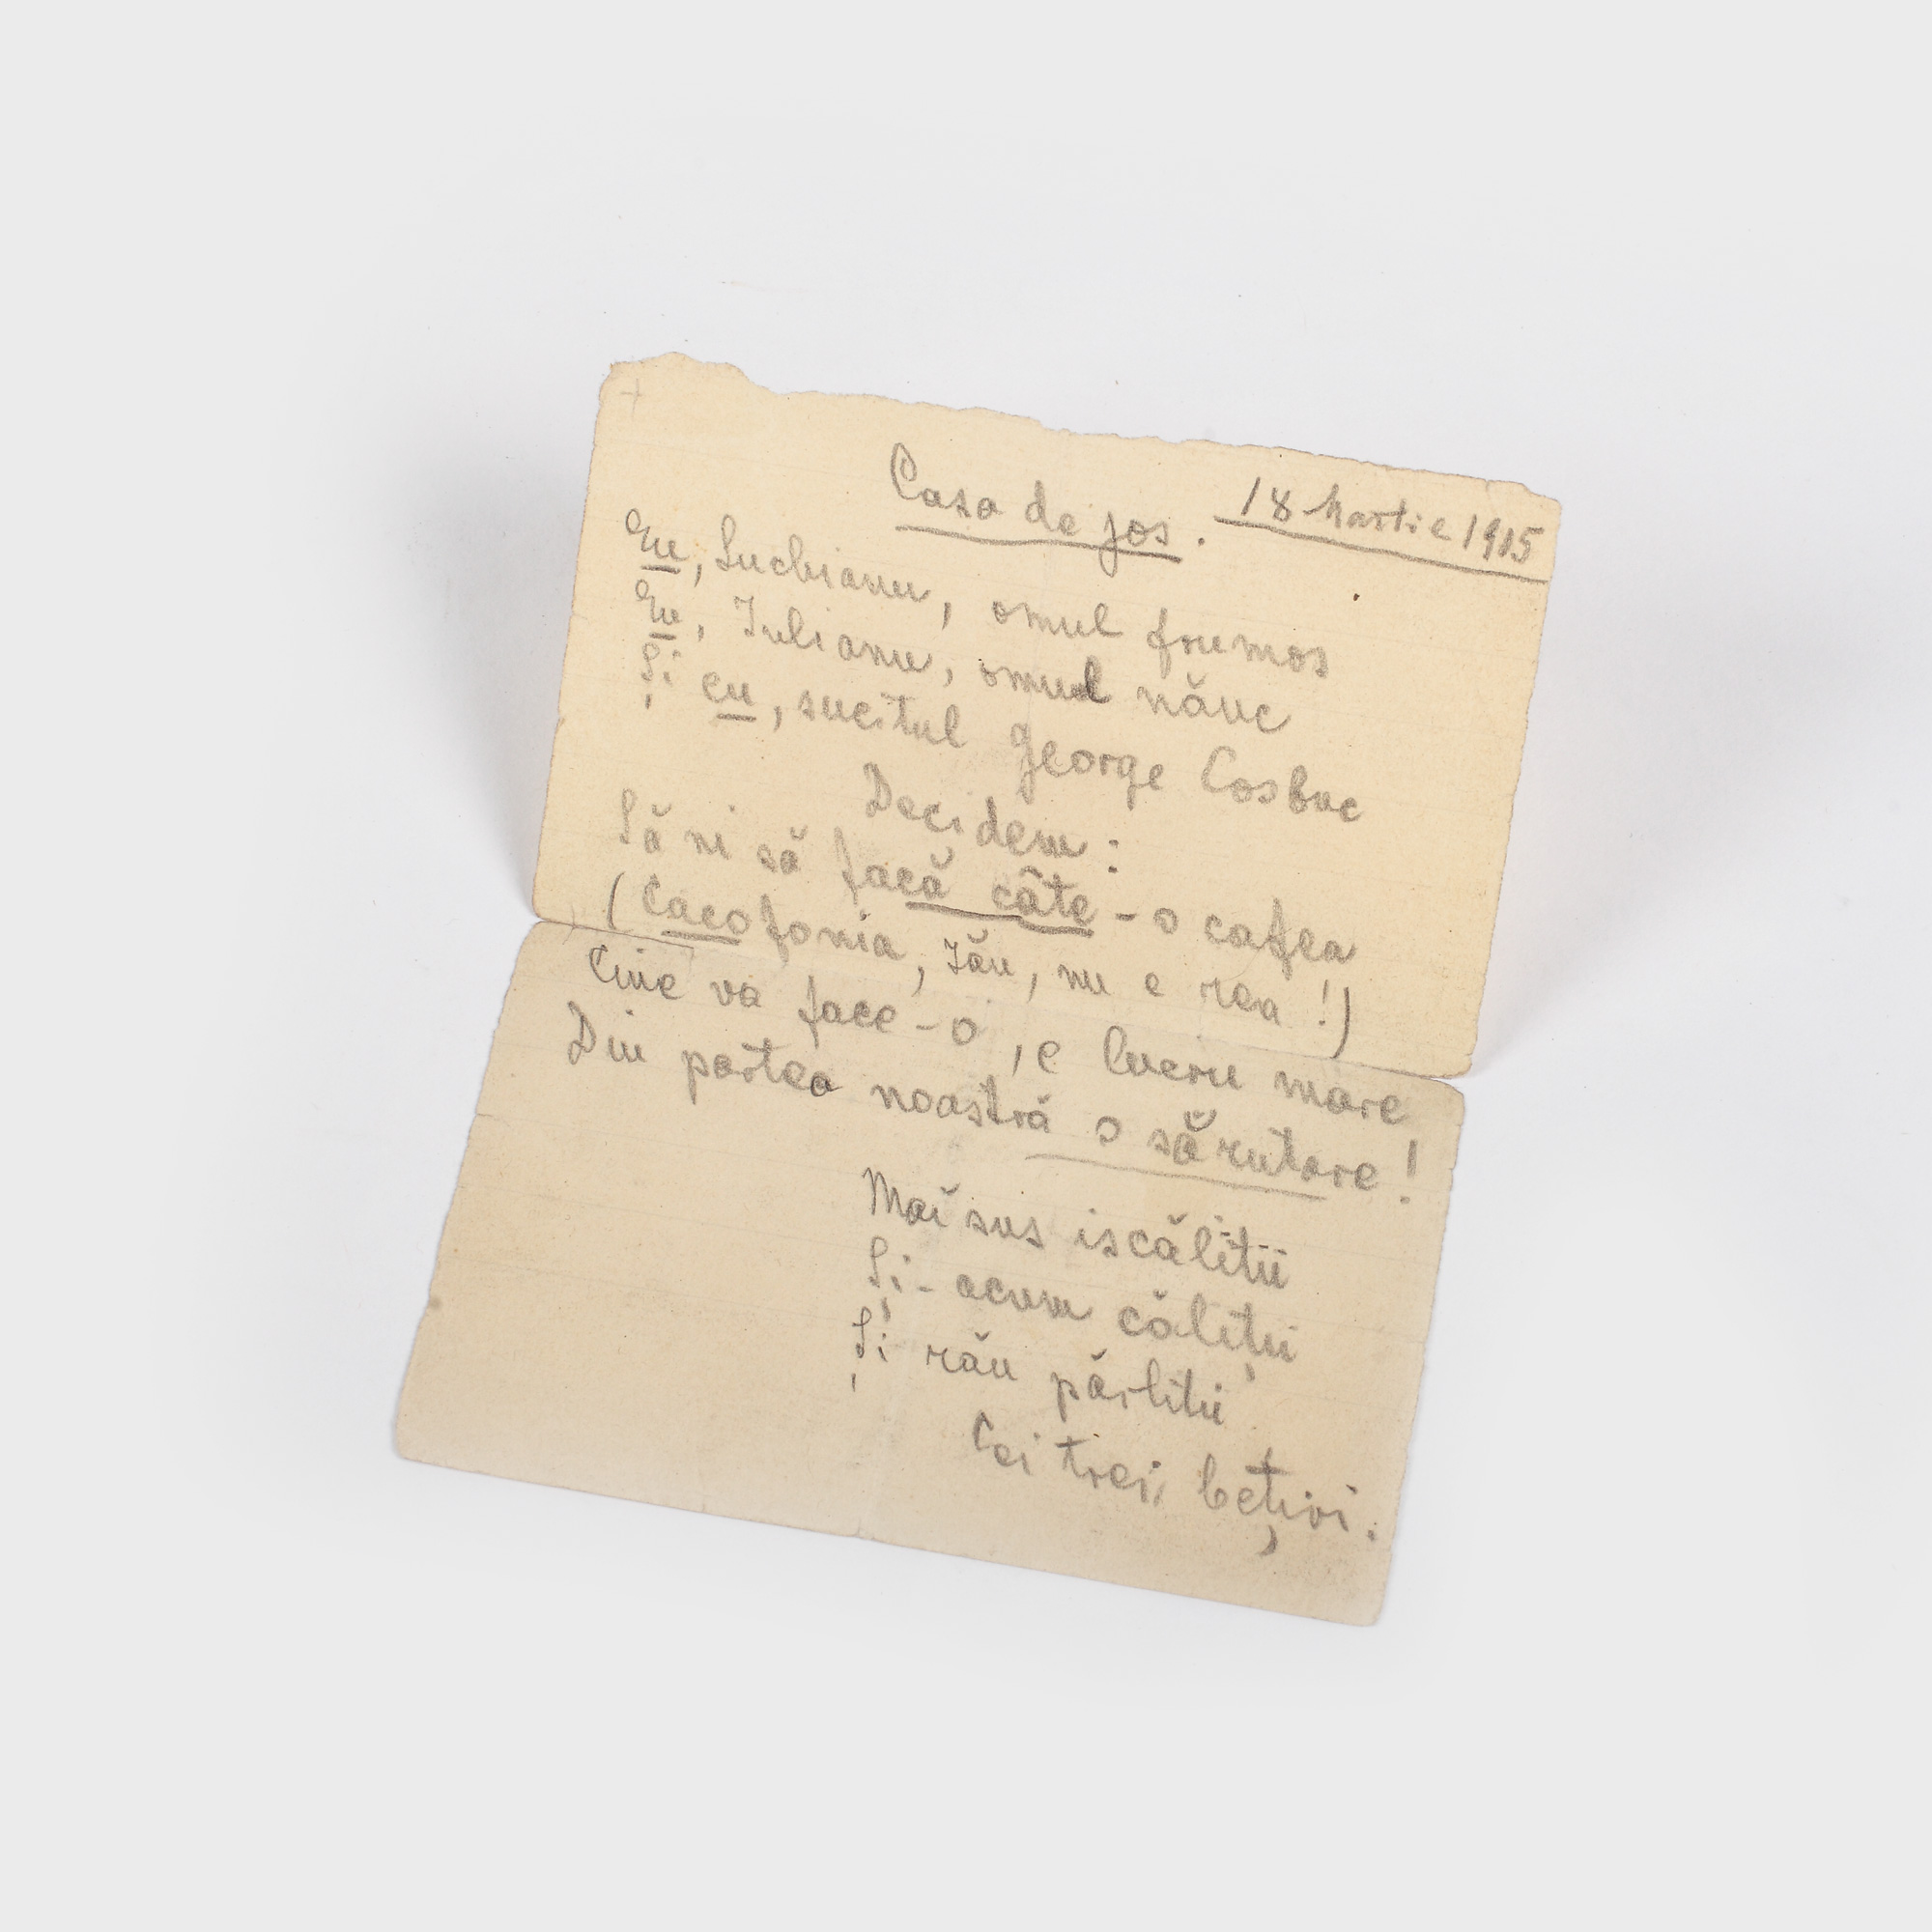 Casa de jos. 18 Martie 1905
Eu, Suchianu, omul frumos
Eu, Iulianu, omul năuc
Și eu, sucitul George Cosbuc
Decidem:
Să ni să facă câte-o cafea
(Cacofonia, zău, nu e rea!)
Cine va face-o, e lucru mare
Din partea noastră o sărutare!
Maĭ sus iscălitii
Și-acum căliții
Și rău părlitii
Cei trei bețivi.